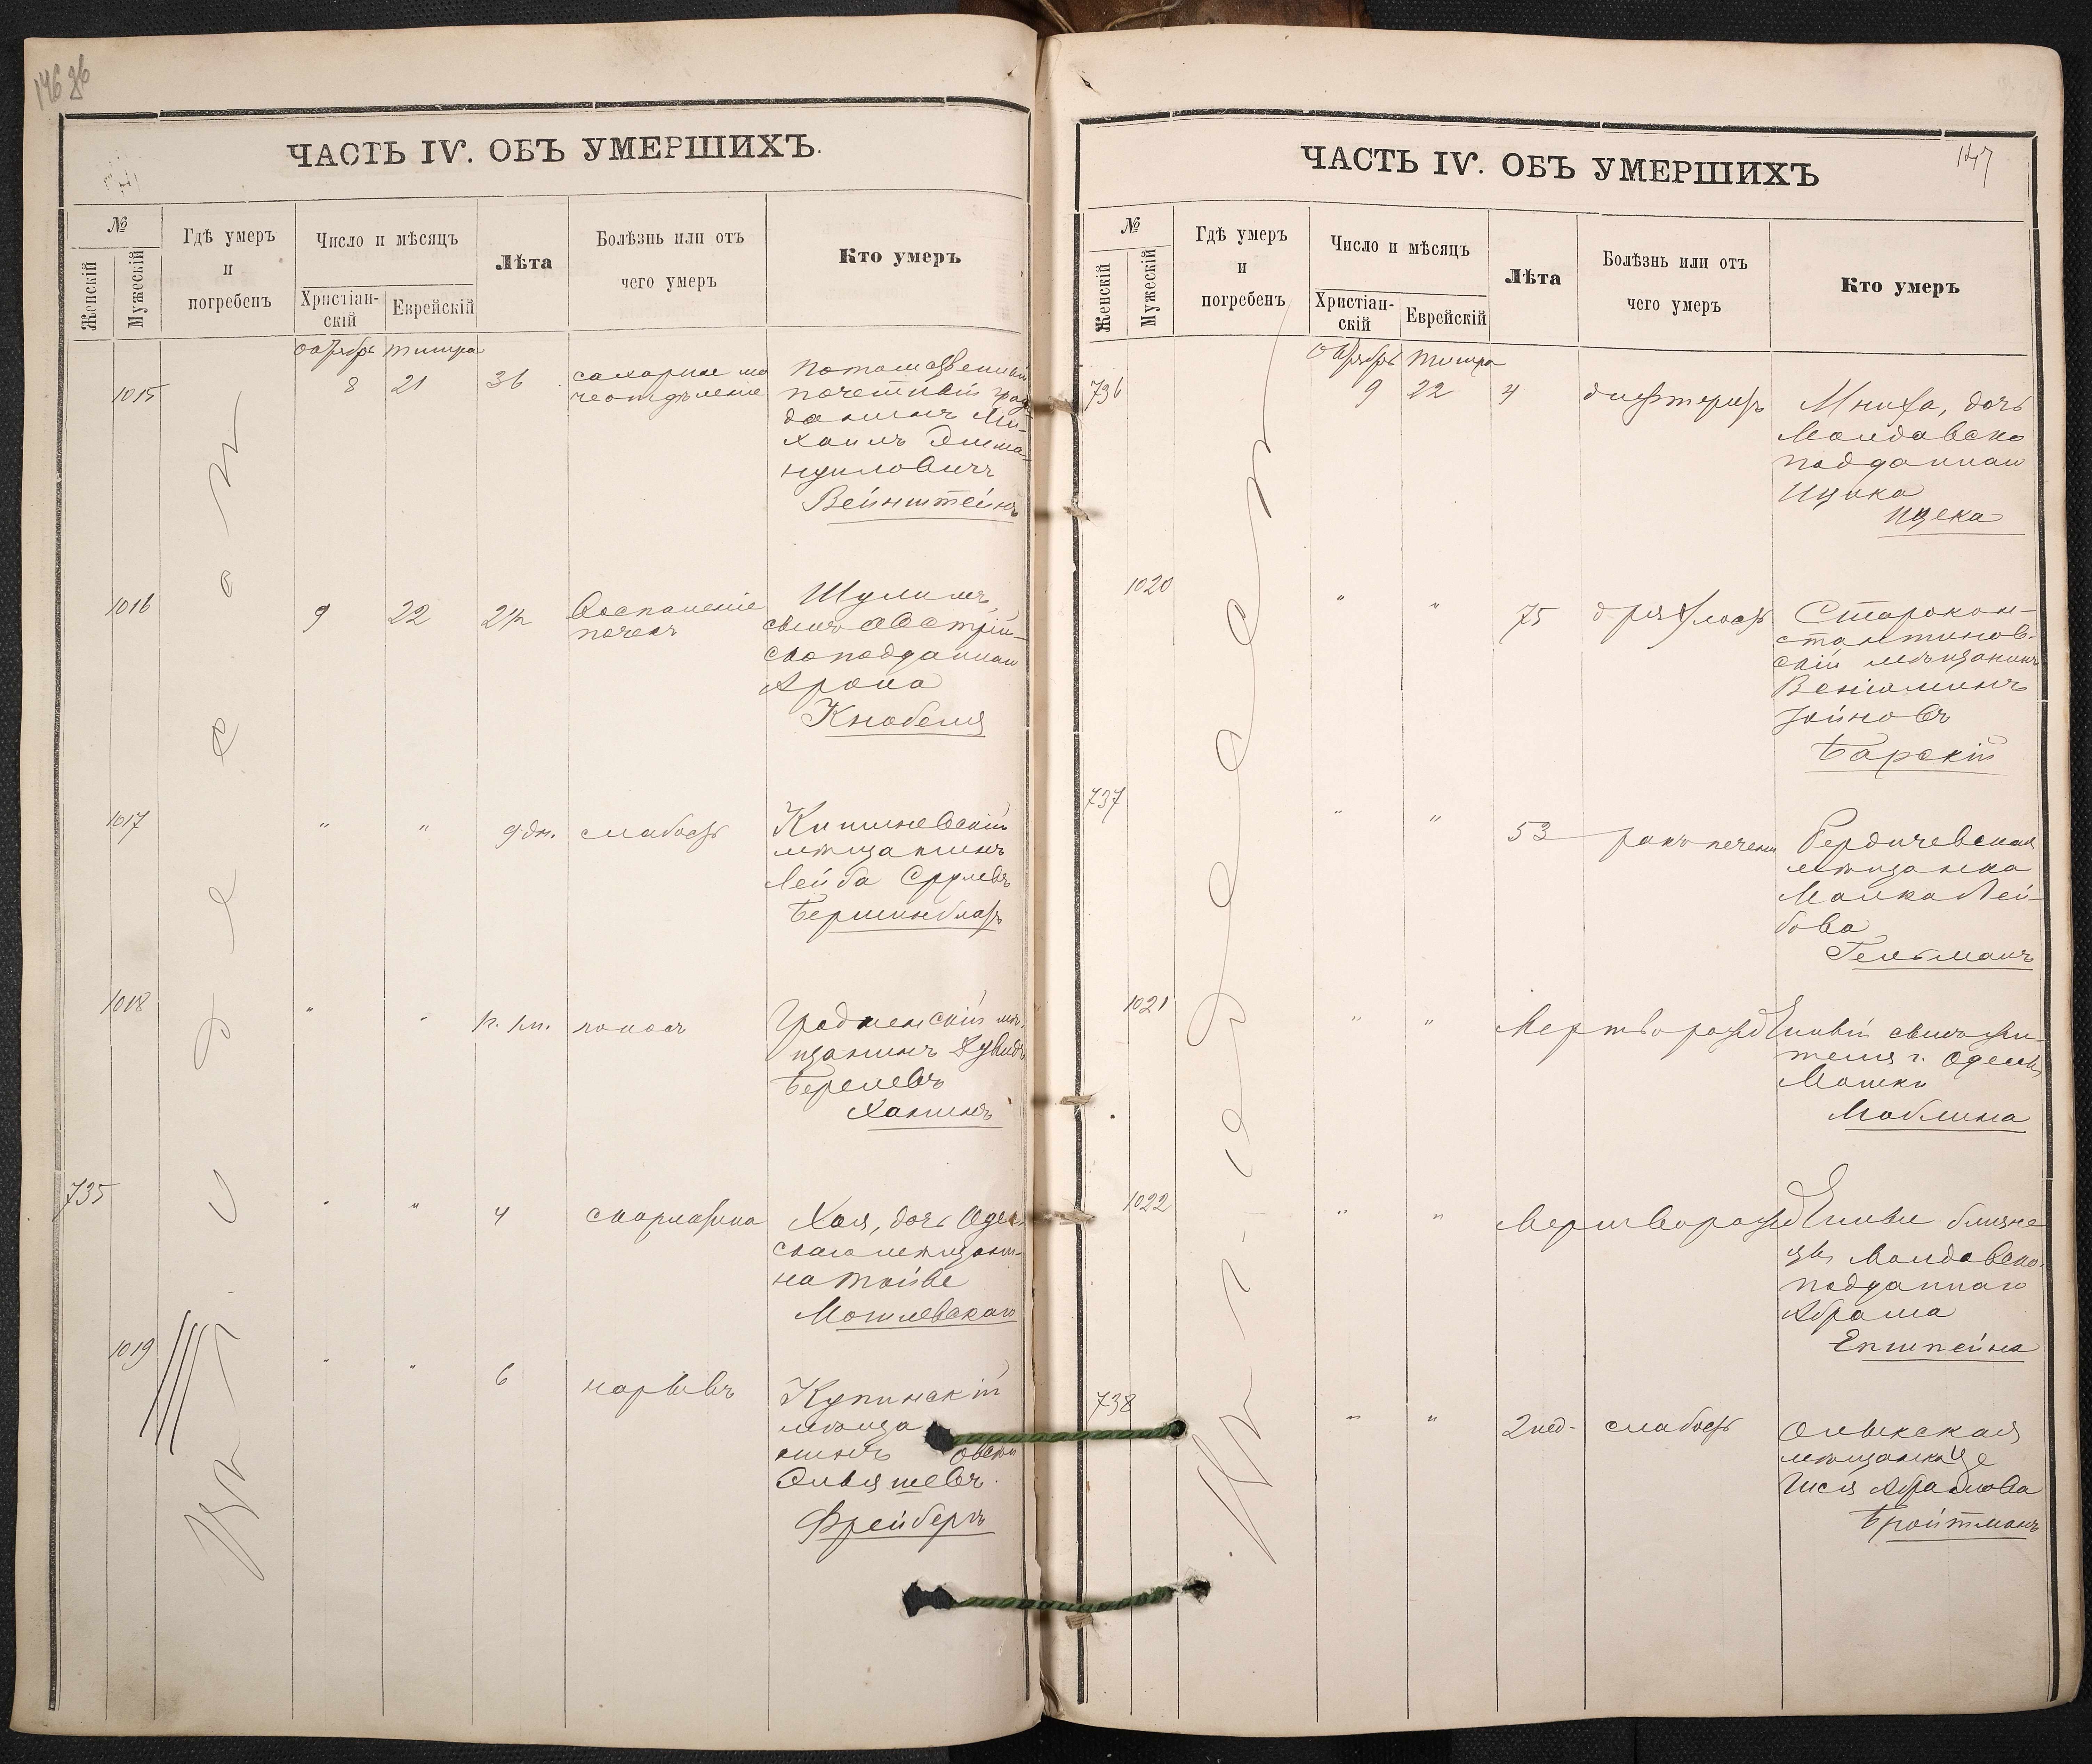 146 об
ЧАСТЬ IV. ОБЪ УМЕРШИХЪ.
№
Женскій
Мужескій
Гдѣ умеръ
и
погребенъ
Число и мѣсяцъ
Христіан-
скій
Еврейскій
Лѣта
Болѣзнь или отъ
чего умеръ
Кто умеръ
октябрь тишри
1015 8 21 36 сахарное мо
чеотдѣленіе
Потомственный
почетный граж
данинъ Ми-
хаилъ Эмма-
нуиловичъ
Вейнштейнъ
1016 9 22 24 Воспаленіе
почекъ
Шулимъ,
сынъ Австрій-
скоподданнаго
Арона
Кнобеля
1017 " " 9 дн. слабость
Кишиневскій
мѣщанинъ
Лейба Срулевъ
Бершинблатъ
1018 " " поносъ
Гродненскій мѣ-
щанинъ
Берелевъ
Ханинъ
735 " " 4 скарлатина
Хая, дочь Одес
скаго мѣщани-
на Тойве
Могилевскаго
1019 " " 6 нарывъ
Купинскій
мѣща
нинъ
Фрейбергъ
Въ г. Одессѣ онъ
147
ЧАСТЬ IV. ОБЪ УМЕРШИХЪ
№
Женскій
Мужескій
Гдѣ умеръ
и
погребенъ
Число и мѣсяцъ
Христіан-
скій
Еврейскій
Лѣта
Болѣзнь или отъ
чего умеръ
Кто умеръ
Октябрь тишри
736 9 22 4 дифтеритъ
Мниха, дочь
Молдавско
подданнаго
Ицика
Ицека
1020 " " 75 дряхлость
Старокон-
стантинов-
скій мѣщанинъ
Веніаминъ
Зойновъ
Барскій
737 " " 53 ракъ печени
Бердичевская
мѣщанка
Малка Лей-
бова
Гельманъ
1021 " " Мертворожденный сынъ жи-
теля г. Одессы
Мошки
Моблина
1022 " " Мертворожденные близне
цы Молдавско-
подданнаго
Абрама
Епштейна
738 " " 2 нед. слабость
Олыкская
мѣщанка Це
Абрамова
Бройтманъ